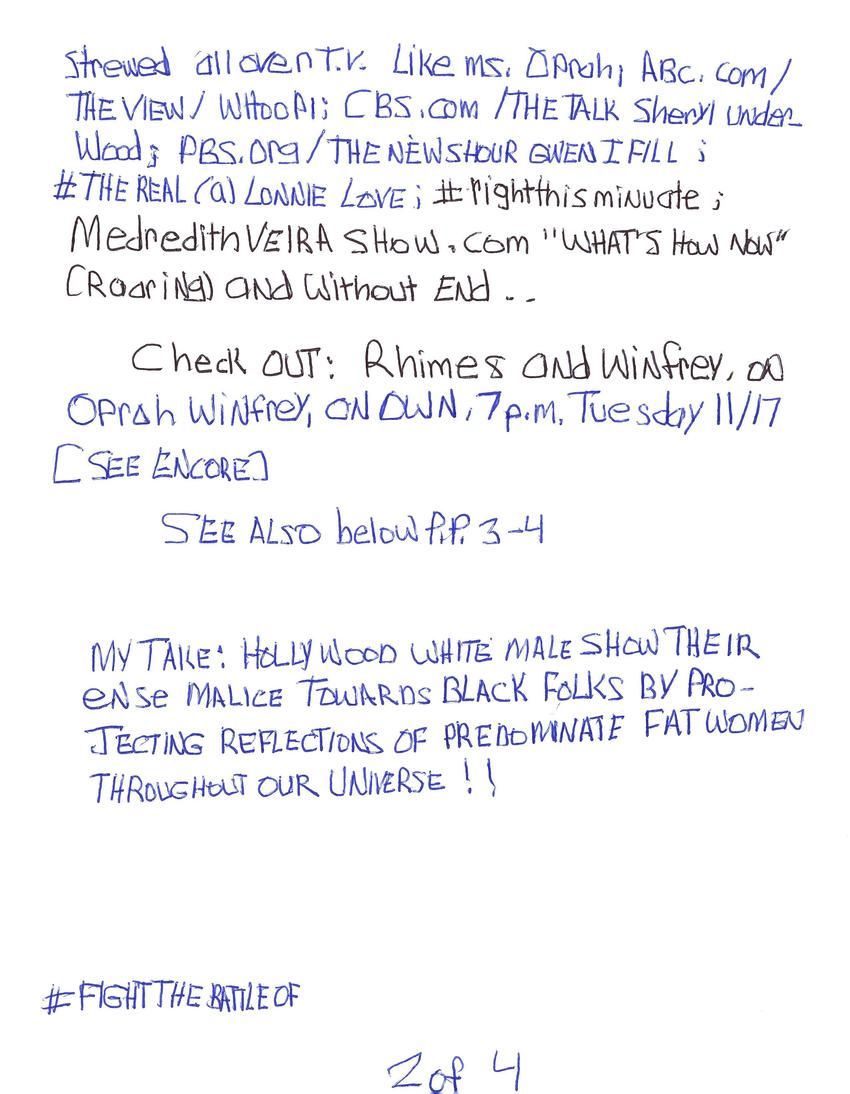 Strewed all over T.V. Like ms. Oprah; ABC.com/
THE VIEW/ WHOOPI; CBS.com /THE TALK Sheryl Under-
Wood; PBS.Org/THE NEWSHOUR GWEN IFILL ;
#THE REAL (a) LONNIE LOVE; #rightthisminuate ;
Medredith VEIRA SHOW.com "WHAT'S HOW NOW"
(Roaring) and Without END . .
Check OUT: Rhimes and Winfrey, on
OPrah Winfrey, ON OWN, 7 p.m, Tuesday 11/17
[SEE ENCORE]
SEE ALSO below P.P. 3-4
MY TAKE: HOLLYWOOD WHITE MALE SHOW THEIR
ENSE MALICE TOWARDS BLACK FOLKS BY PRO-
JECTING REFLECTIONS OF PREDOMINATE FAT WOMEN
THROUGHOUT OUR UNIVERSE !!
#FIGHTTHEBATTLEOF
2 of 4